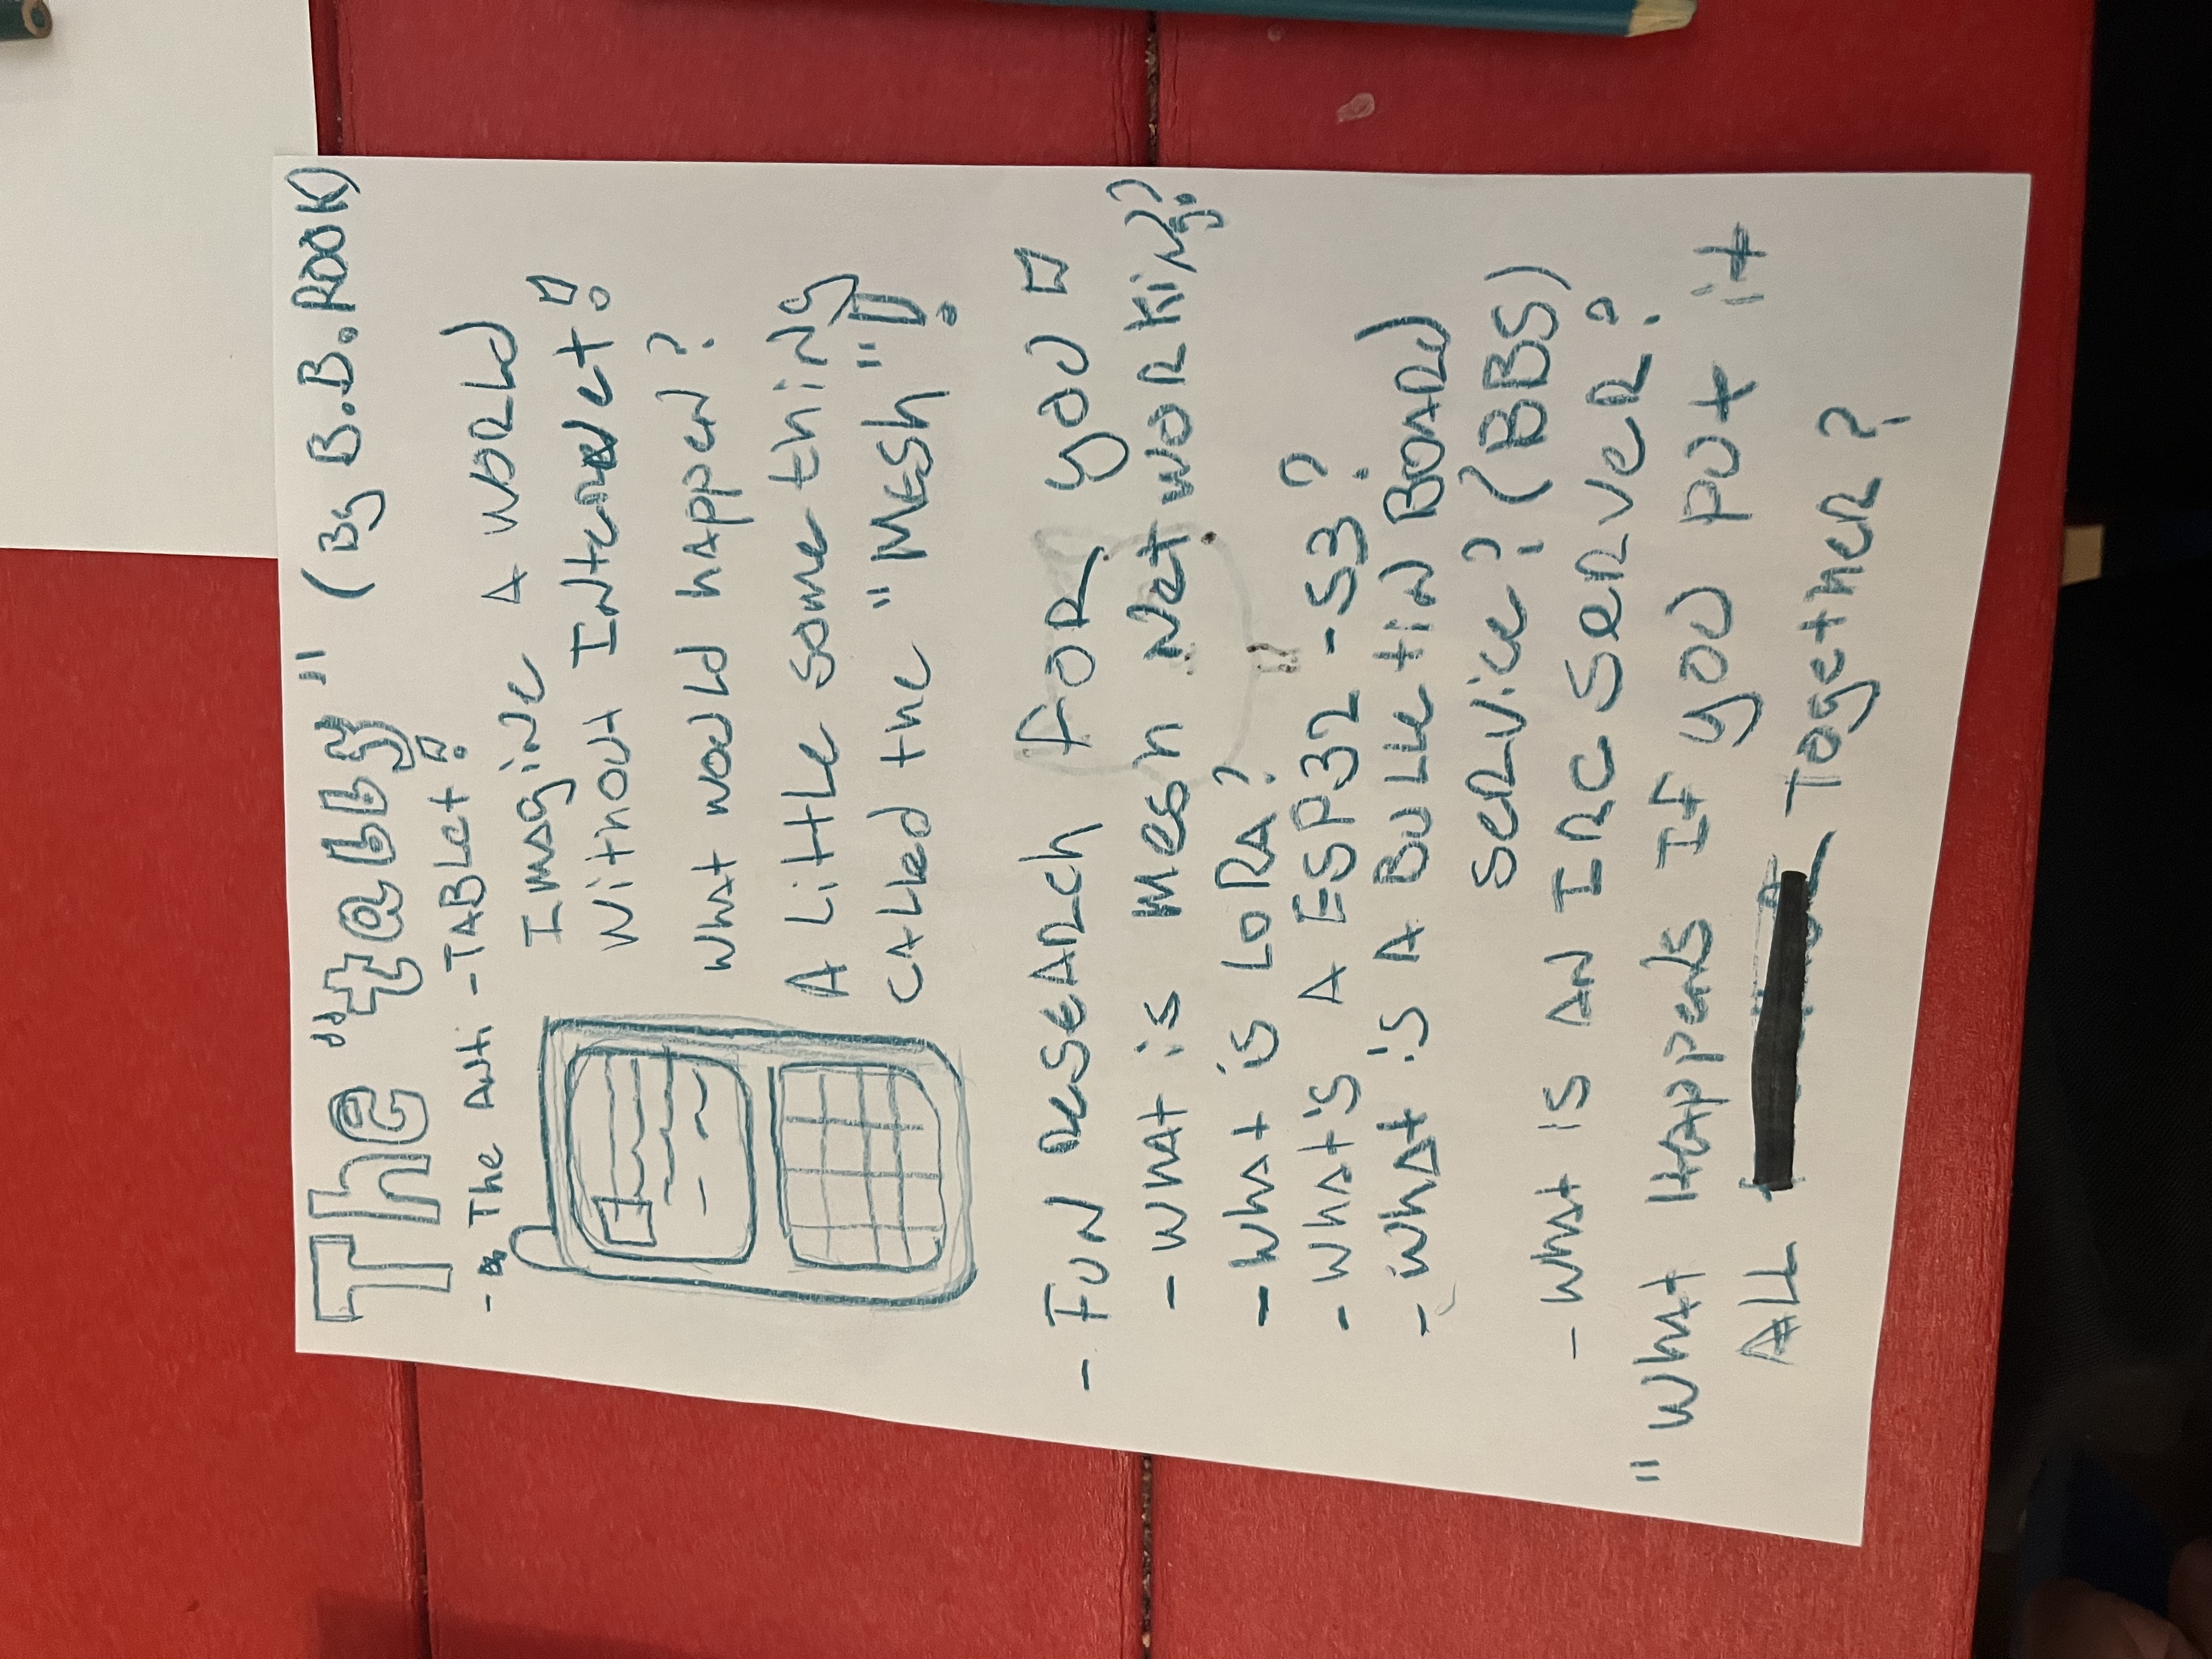 The "t@bby" (By B.B.ROOK)
- The Anti-TABLet!
Imagine A WORLd
Without Internet!
What would happen?
A Little something
CALLed the "Mesh"!
- Fun ReseARch FoR you
- What is Mesh Networking?
- What is LoRA?
- What's A ESP32-S3?
- What is A Bulletin BOARd
SeRvice? (BBS)
- What is AN IRC SeRveR?
"What HAppens If you put it
ALL TogetheR?